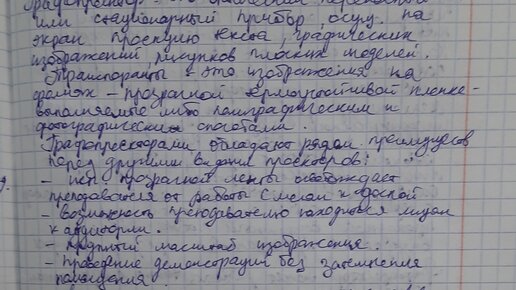 Графопроектор – это оптический переносной
или стационарный прибор осущ. на
экран проекцию текста, графических
изображений, рисунков плоских моделей.
Транспоранты – это изображения на
фолиях – прозрачной термоустойчивой пленке –
выполняемые либо полиграфическим и
фотографическим способами.
Графопроекторами обладают рядом преимуществ
перед другими видами проекторов:
– исп. прозрачной ленты освобождает
преподавателя от работы с мелом и доской
– возможность преподавателю находиться лицом
к аудитории.
– крупный масштаб изображения.
– проведение демонстраций без затемнения
помещения.